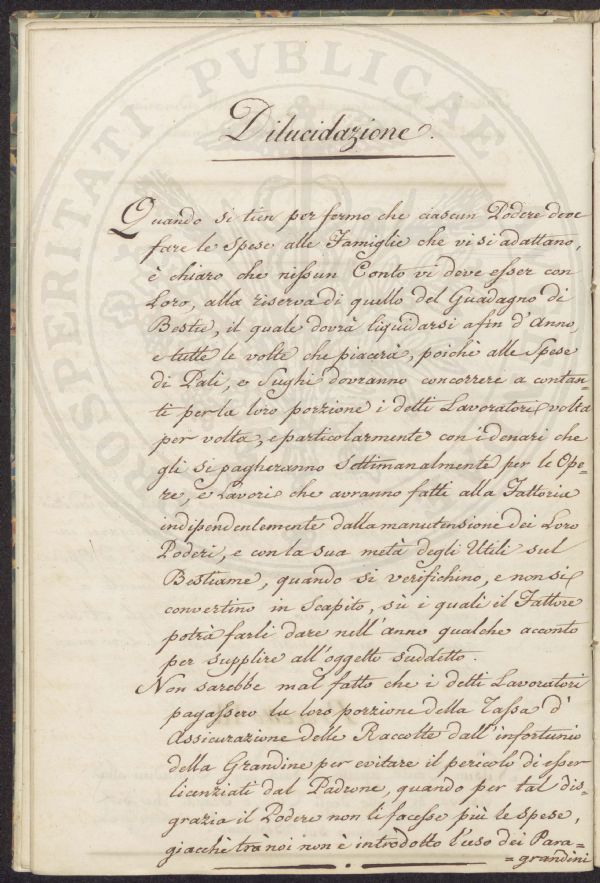 Dilucidazione.
Quando si tien per fermo che ciascun Podere deve
fare le spese alle Famiglie che vi si adattano,
è chiaro che nissun Conto vi deve esser con
Loro, alla riserva di quello del Guadagno di
Bestie, il quale dovrà liquidarsi a fin d'Anno,
e tutte le volte che piacerà, poichè alle Spese
di Pali, e Sughi dovranno concorrere a contan=
ti per la loro porzione i detti Lavoratori volta
per volta, e particolarmente con i denari che
gli si pagheranno Settimanalmente per le Ope=
re, e Lavori che avranno fatti alla Fattoria
indipendentemente dalla manutensione dei Loro
Poderi, e con la sua metà degli Utili sul
Bestiame, quando si verifichino, e non si
convertino in Scapito, sù i quali il Fattore
potrà farli dare nell'anno qualche acconto
per supplire all'oggetto suddetto.
Non sarebbe mal fatto che i detti Lavoratori
pagassero la loro porzione della Tassa d'
Assicurazione delle Raccolte dall'infortunio
della Grandine per evitare il pericolo di esser
licenziati dal Padrone, quando per tal dis=
grazia il Podere non li facesse più le spese,
giacchè trà noi non è introdotto l'uso dei Para=
=grandini
PROSPERITATI PVBLICAE